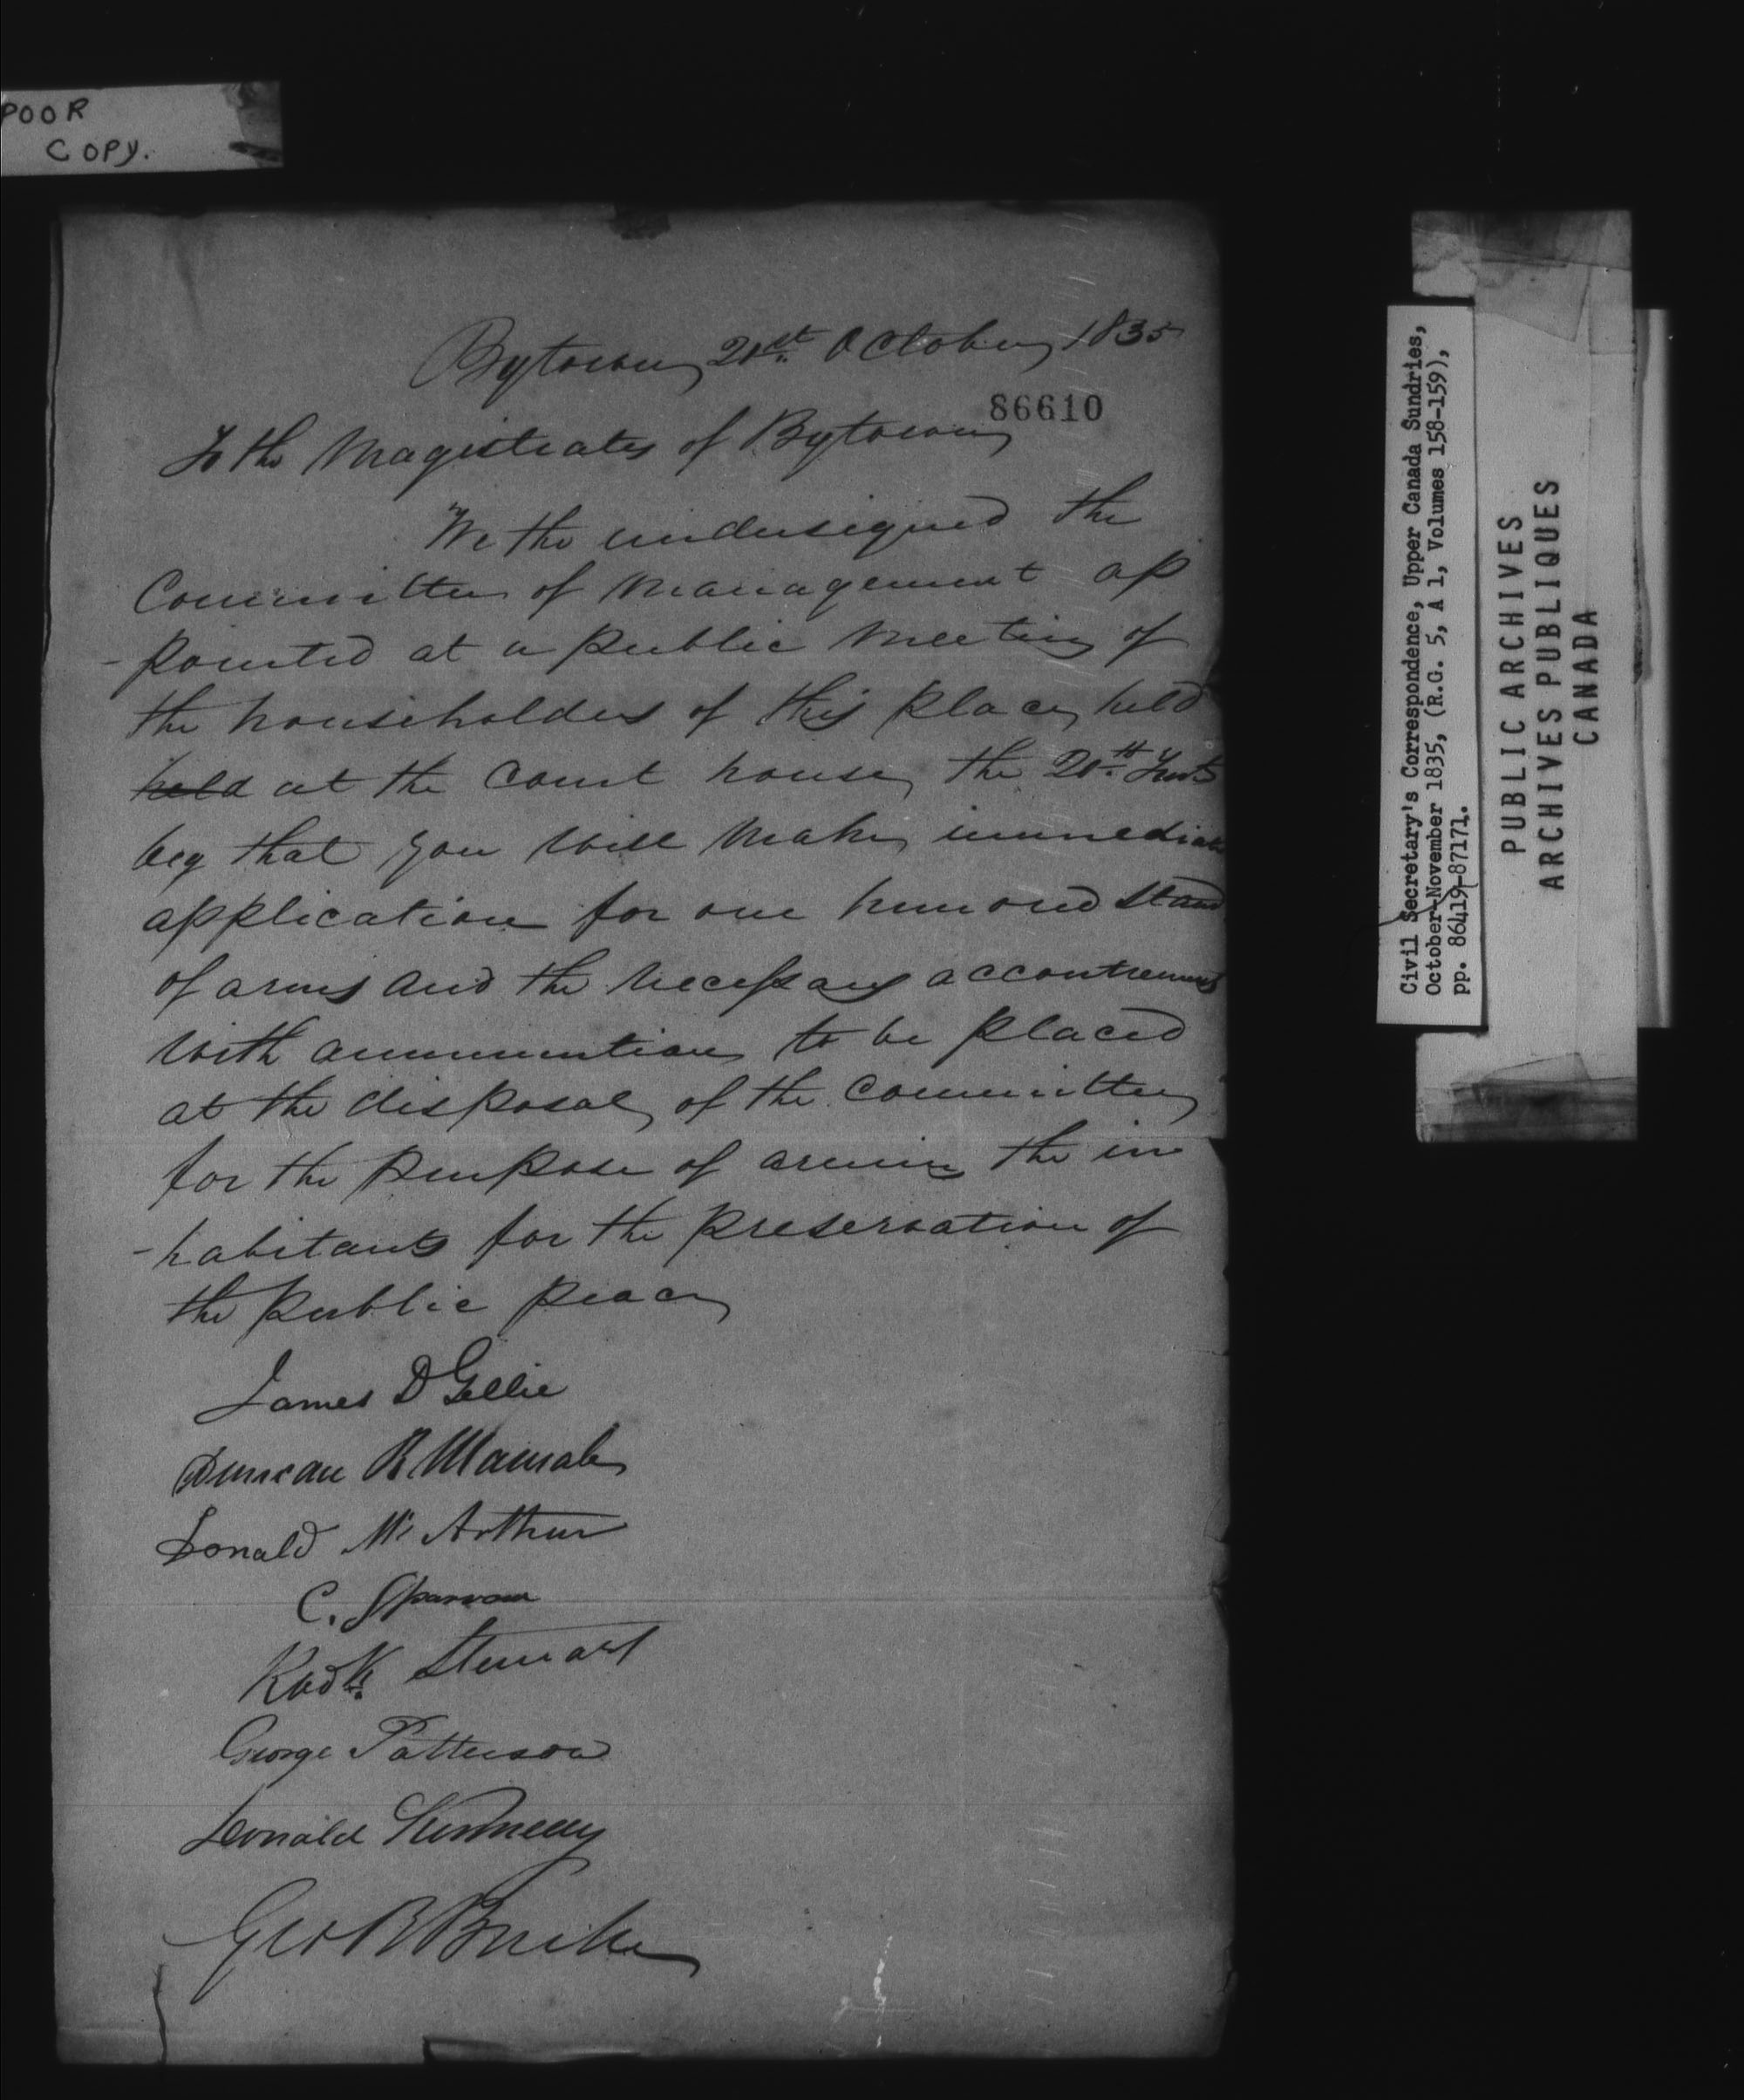 POOR
COPY.
Bytown 21st October 1835
86610
To the Magistrates of Bytown
We the undersigned the
Committee of Management ap
-pointed at a public Meeting of
the householders of this place held
held at the Court house the 20th Inst
beg that you will make immediate
application for one hundred stand
of arms and the necessary accoutrements
with ammunition to be placed
at the disposal of the Committee
for the purpose of arming the in
-habitants for the preservation of
the public peace
James D Gellie
Duncan R Macnab
Donald McArthur
C. Sparrow
Rodk. Stewart
George Patterson
Donald Kennedy
Geo R Burke
Civil Secretary's Correspondence, Upper Canada Sundries,
October-November 1835, (R.G. 5, A 1, Volumes 158-159),
pp. 86419-87171.
PUBLIC ARCHIVES
ARCHIVES PUBLIQUES
CANADA